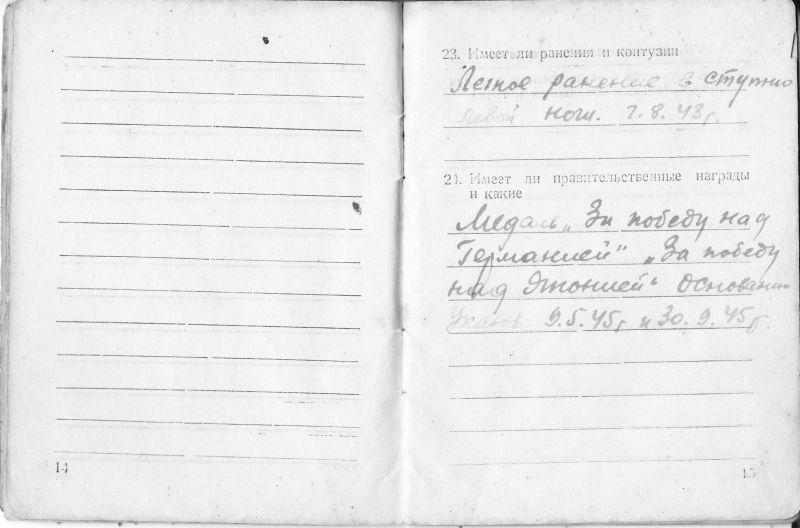 14
23. Имеет ли ранения и контузии
Легкое ранение в ступню
левой ноги. 7.8.43г.
24. Имеет ли правительственные награды
и какие
Медаль „За победу над
Германией" „За победу
над Японией" Основании
Указов 9.5.45г и 30.9.45г.
15